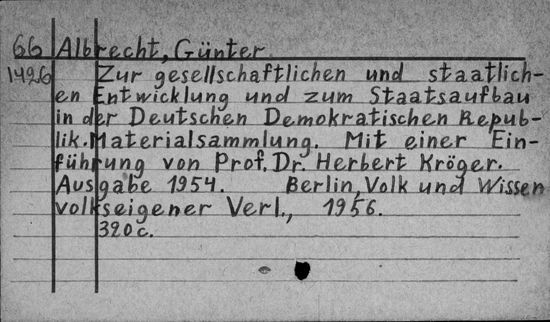 66 Albrecht, Günter
1426 Zur gesellschaftlichen und staatlich-
en Entwicklung und zum Staatsaufbau
in der Deutschen Demokratischen Repub-
lik. Materialsammlung. Mit einer Ein-
führung von Prof. Dr. Herbert Kröger.
Ausgabe 1954. Berlin, Volk und Wissen
volkseigener Verl., 1956.
320 c.